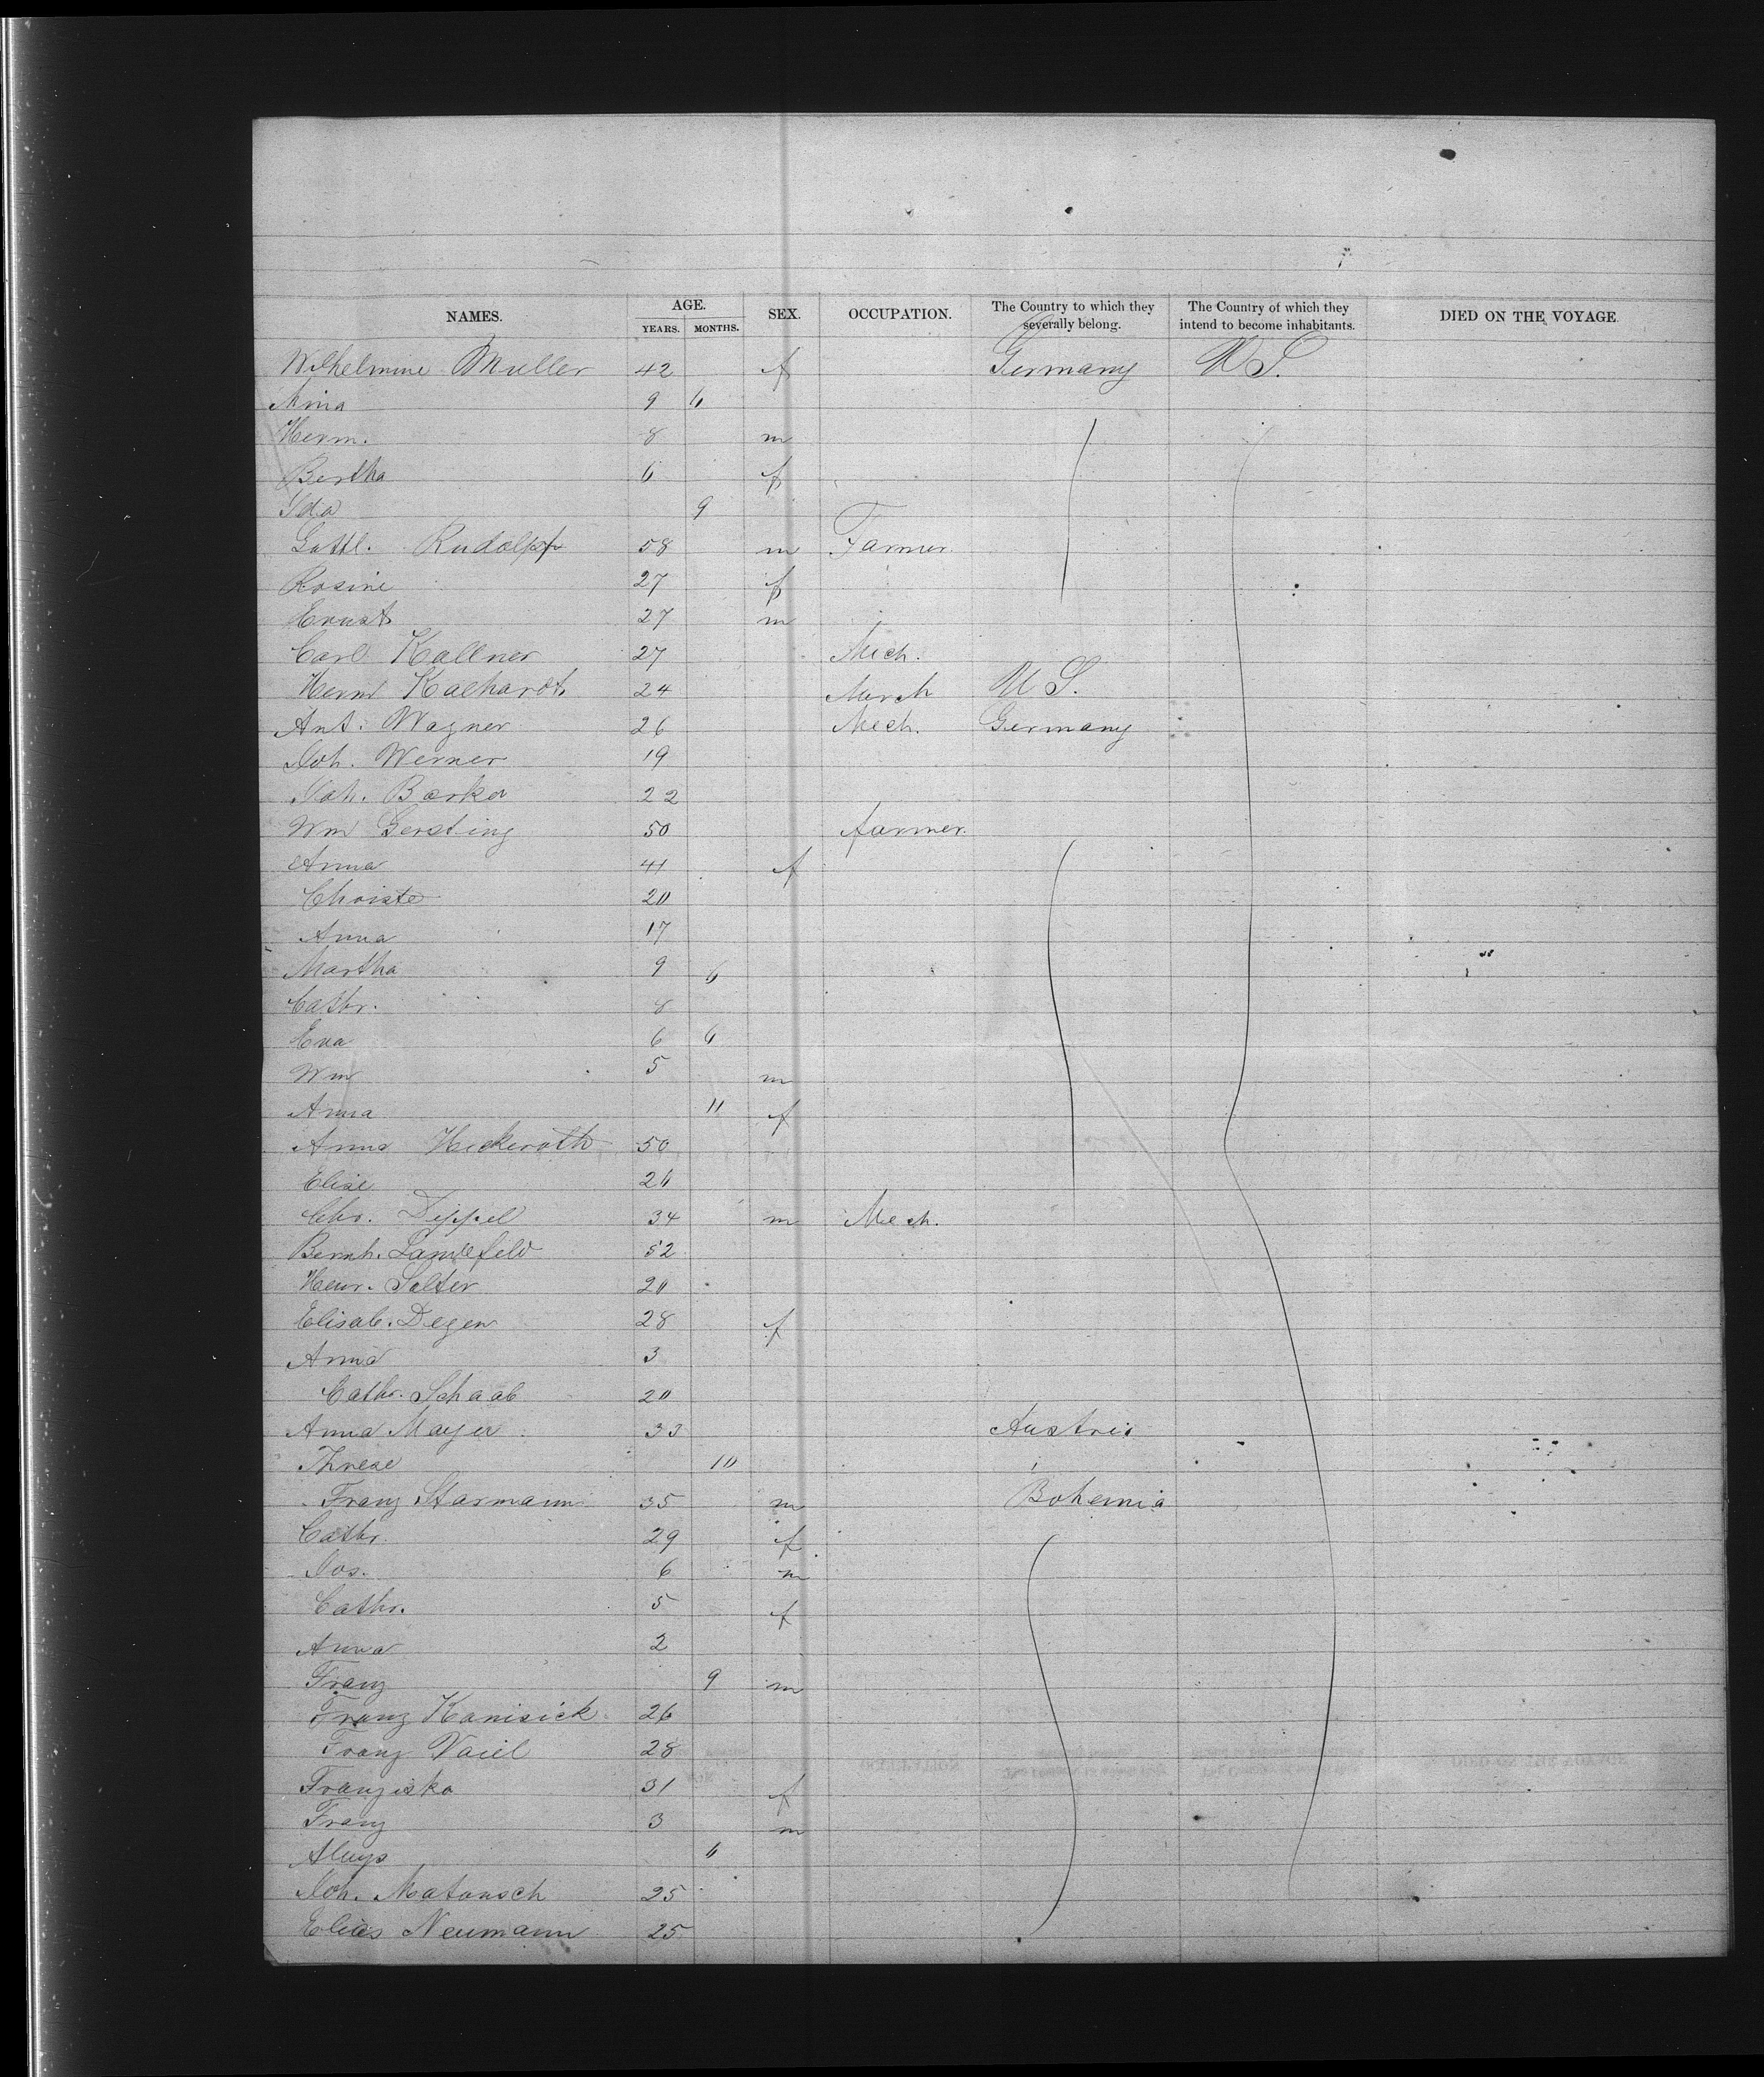 NAMES. AGE. SEX. OCCUPATION. The Country to which they severally belong. The Country of which they intend to become inhabitants. DIED ON THE VOYAGE.
YEARS. MONTHS.
Wilhelmine Muller 42 f Germany U S.
Mina 9 6
Herm. 8 m
Bertha 6 f
Ida 9
Gottl. Rudolph 58 m Farmer.
Rosine 27 f
Ernst 27 m
Carl Kallner 27 Mech.
Herm 24 Merch U S.
Ant. Wagner 26 Mech. Germany
Joh. Werner 19
Joh. Barker 22
Wm Gersting 50 farmer.
Anna 41 f
Christe 20
Anna 17
Martha 9 6
Cathr. 8
Eva 6 6
Wm 5 m
Anna 11 f
Anna Heckeroth 50
Elise 26
Chr. Dippel 34 m Mech.
Bernh. Landefeld 52
Henr. Salter 20
Elisab. Degen 28 f
Anna 3
Cathr. Schaab 20
Anna Mayer 33 Austria
Threse 10
Franz Starmann 35 m Bohemia
Cathr. 29 f
Jos. 6 m
Cathr. 5 f
Anna 2
Franz 9 m
Franz Kanisick 26
Franz Vaiel 28
Franziska 31 f
Franz 3 m
Aloys 6
Joh. Matousch 25
Elias Neumann 25